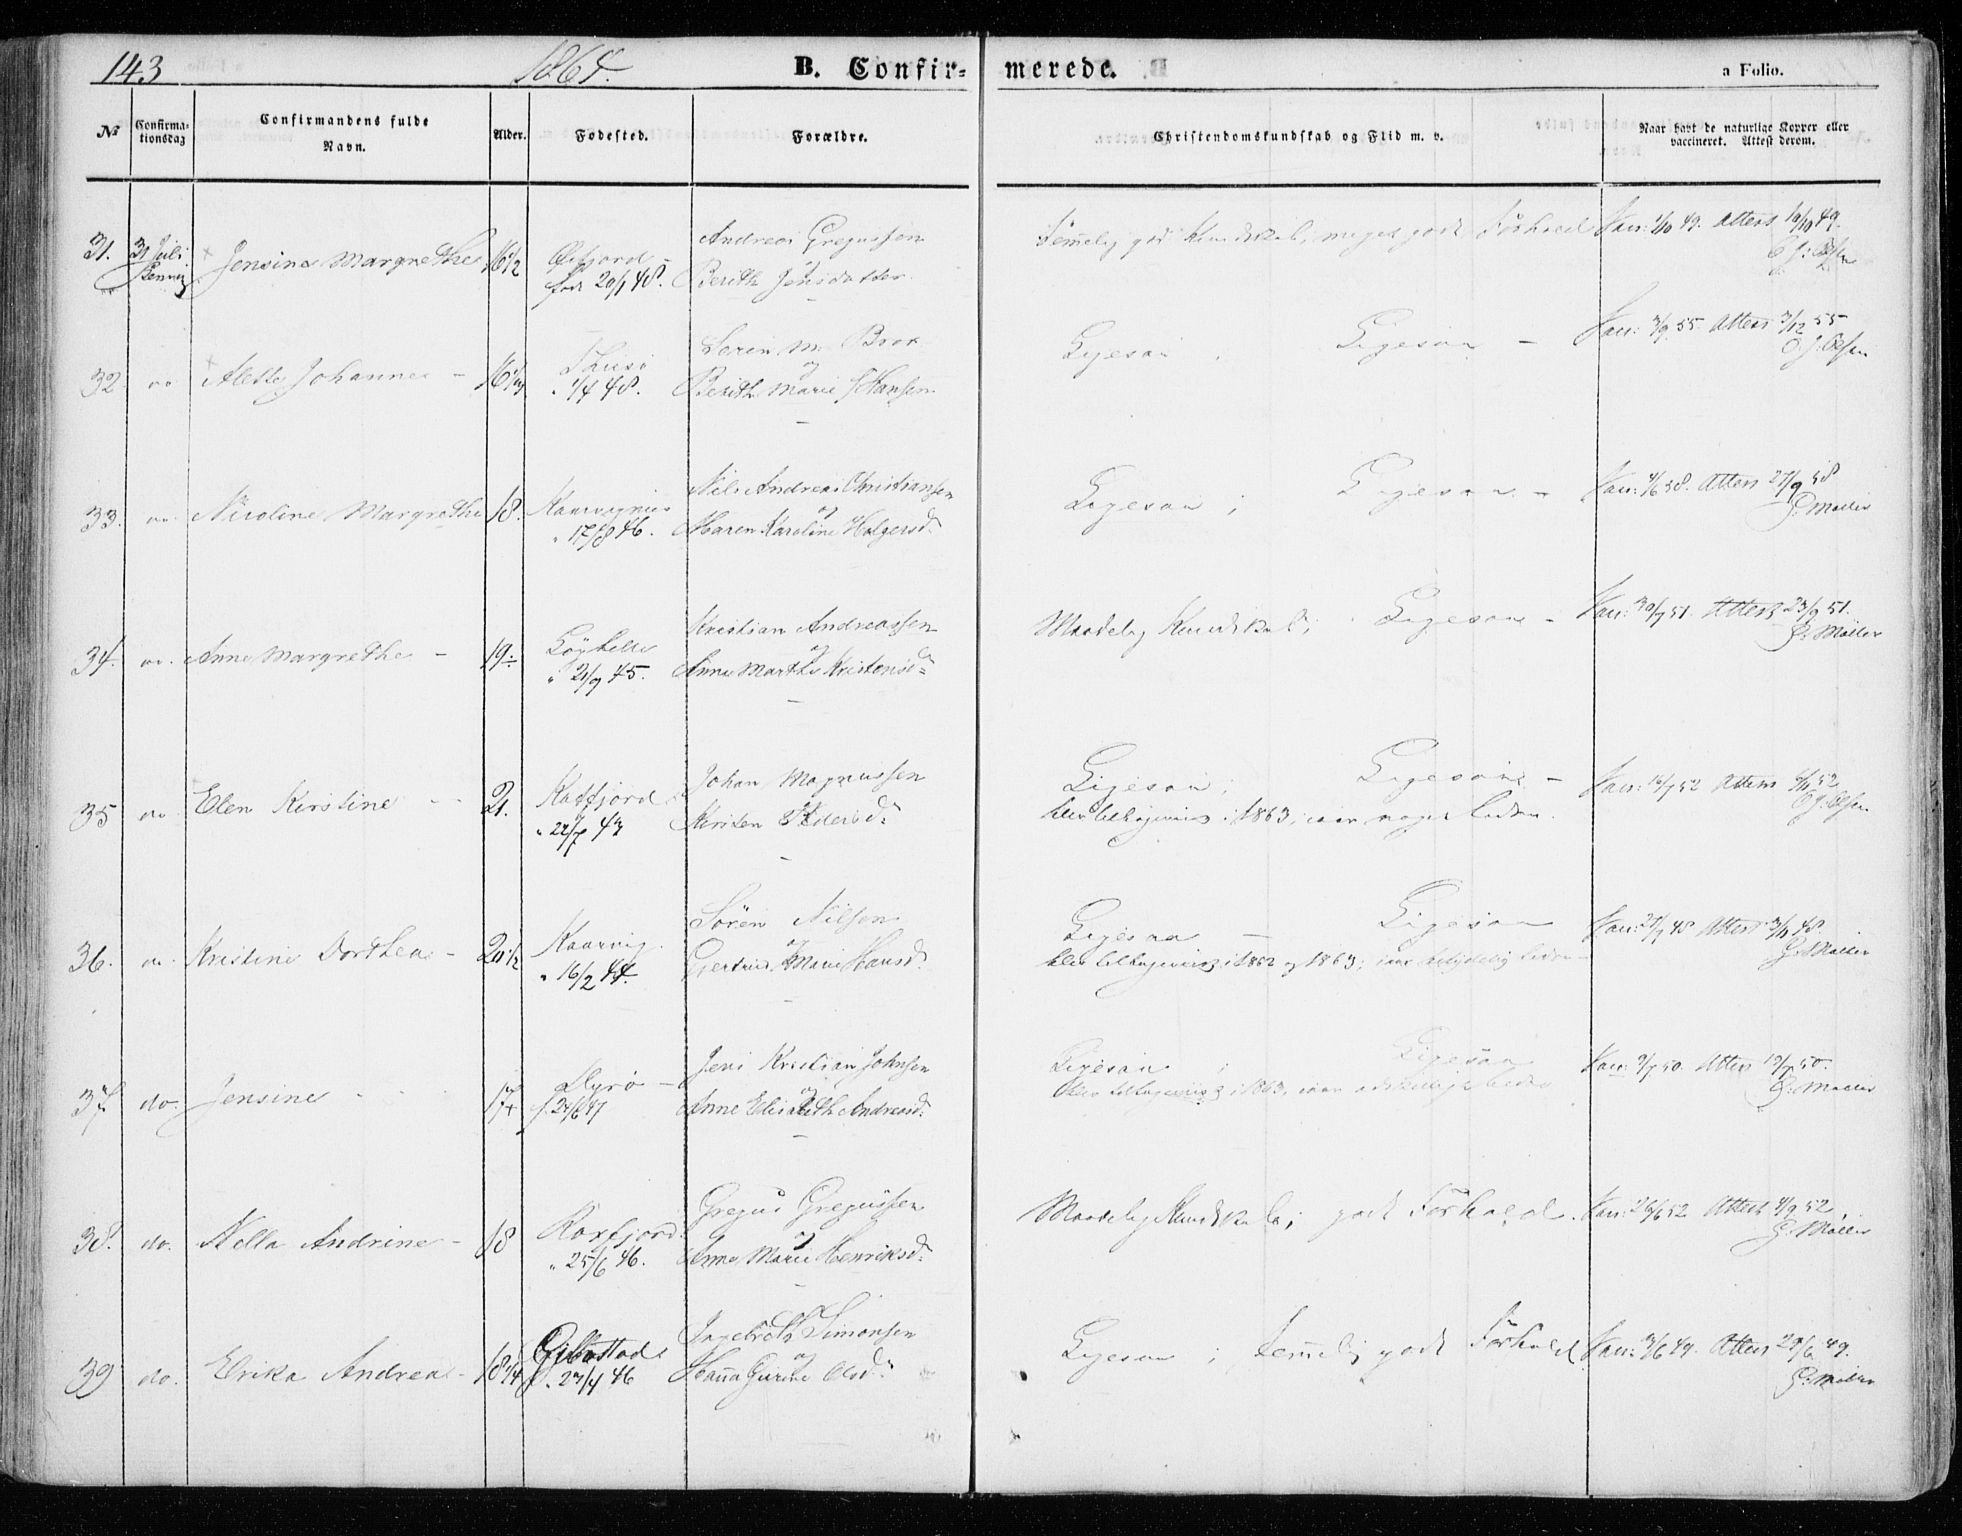 143
1864.
B. Confir- merede.
a Folio.
No
Confirma-
tionsdag
Confirmandens fulde
Navn.
Alder.
Fødested.
Forældre.
Christendomskundskab og Flid m. v.
Naar havt de naturlige Kopper eller
vaccineret. Attest derom.
31. 31 Juli Jensine Margrethe 16 1/2
født 20/1 48.
Andreas Gregussen
og
Berith Jensdatter
Temmelig god Kundskab, meget godt Forhold
Vac: 1/10 49. Attest 10/10 49.
O. J. Olsen
32. do Alette Johanne - 16 1/4
" 1/4 48.
Sören M. Brox
og
Berith Marie Hansen
Ligesaa, Ligesaa -
Vac: 3/9 55. Attest 3/12 55
O. J. Olsen
33. do. Nicoline Margrethe 18.
" 17/8 46.
Nils Andreas Christiansen
og
Maren Karoline Holgersd.
Ligesaa; Ligesaa -
Vac: 4/6 58. Attest 27/9 58
P. Møller
34. do. Anne Margrethe - 19
" 21/9 45.
Kristian Andreassen
og
Anne Marthe Kristensd.
Maadelig Kundskab; Ligesaa -
Vac: 30/7 51. Attest 23/9 51.
P. Møller
35 do Elen Kirstine 21.
Katfjord
" 22/7 43
Johan Magnussen
Kirsten Pedersd.
Ligesaa, Ligesaa -
blev tilbageviist i 1863, var noget leden.
Vac: 16/7 52 Attest 4/11 52
O. J. Olsen
36. do. Kristine Dorthea - 20 1/2
Kaarvig.
" 16/2 44.
Sören Nilsen
og
Gjertrud Marie Hansd.
Ligesaa - Ligesaa
blev tilbageviist i 1862 og 1863; var betydelig leden -
Vac: 21/7 48 Attest 3/9 48
P. Møller
37. do. Jensine 17
Dyrö -
f. 24/6 47
Jens Kristian Johnsen
og
Anne Elisabeth Andreasd.
Ligesaa, Ligesaa
blev tilbageviist i 1863, var
Vac: 9/7 50. Attest 19/7 50.
P. Møller
38. do. Nella Andrine - 18
Roxfjord.
" 25/6 46.
Gregus Gregussen
og
Anne Marie Henriksd.
Maadelig Kundskab; godt Forhold.
Vac: 26/6 52 Attest 4/9 52
P. Møller
39 do. Erika Andrea - 18 1/4
Gibostad
" 23/4 46
Ingebrigt Simonsen
og
Hanna Gurine Olsd.
Ligesaa; temmelig godt Forhold
Vac: 3/6 49. Attest 29/6 49.
P. Møller